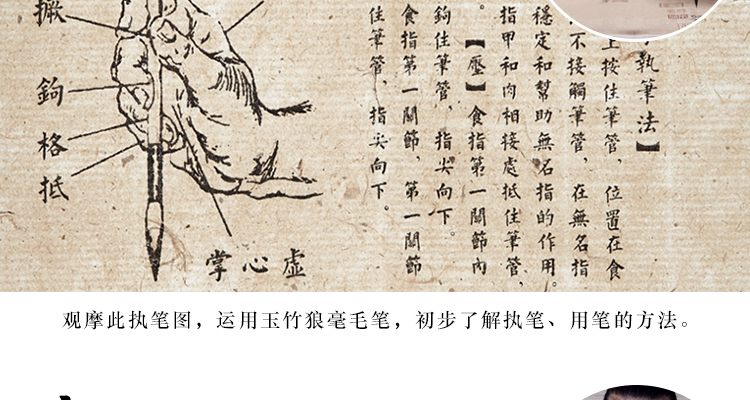 擫
鉤
格
抵
掌心虛
執筆法】
上按住筆管，位置在食
不接觸筆管，在無名指
穩定和幫助無名指的作用。
指甲和肉相接處抵住筆管，
。【壓】食指第一關節內
鉤住筆管，指尖向下。
食指第一關節，第一關節
住筆管，指尖向下。
观摩此执笔图，运用玉竹狼毫毛笔，初步了解执笔、用笔的方法。